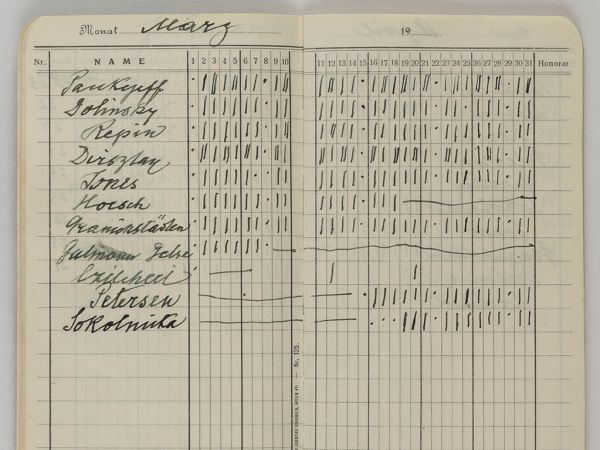 Monat März 19
Nr. NAME 1 2 3 4 5 6 7 8 9 10 11 12 13 14 15 16 17 18 19 20 21 22 23 24 25 26 27 28 29 30 31 Honorar
Pankejeff
Dolinsky
Repin
Dirsztay
Jones
Hoesch
Granichstädten
Petersen
Sokolnicka
Nr. 125.